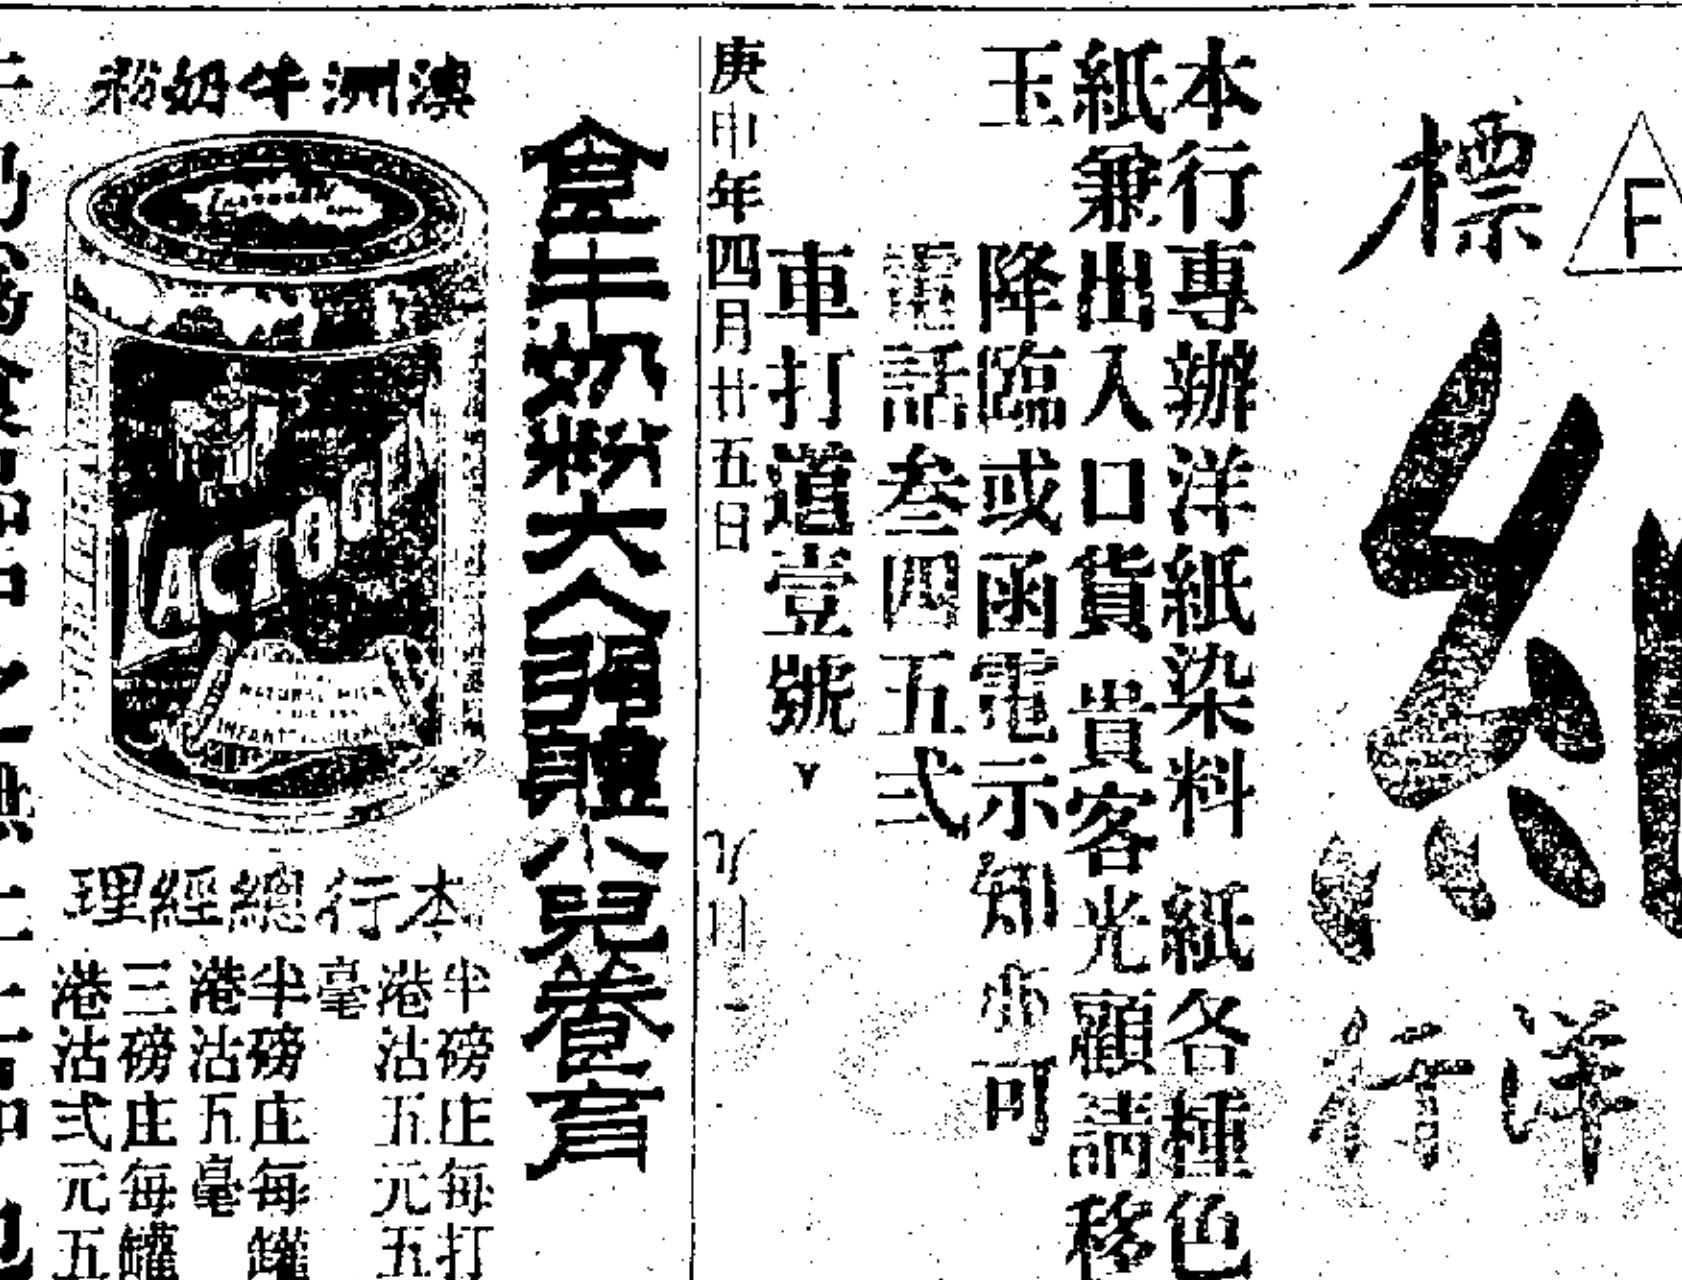 標
F
洋行
本行專辦洋紙染料 紙各種色
紙兼出入口貨 貴客光顧請移
玉
降臨或函電示知亦可
電話叁四五弍
車打道壹號
庚申年四月廿五日
食牛奶粉大人強體小兒養育
澳洲牛奶粉
LACTOGEN
NATURAL MILK
INFANT
本行總經理
半磅庄每打
港沽五元五
毫
半磅庄每罐
港沽五毫
三磅庄每罐
港沽弍元五